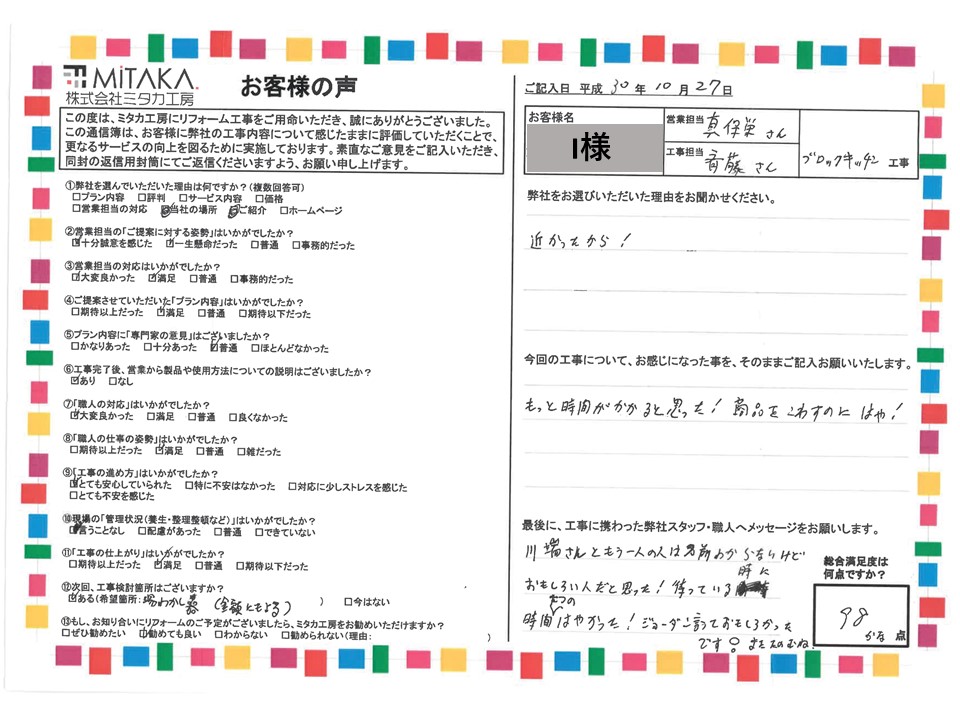 MiTAKA.
株式会社ミタカ工房
お客様の声
この度は、ミタカ工房にリフォーム工事をご用命いただき、誠にありがとうございました。
この通信簿は、お客様に弊社の工事内容について感じたままに評価していただくことで、
更なるサービスの向上を図るために実施しております。素直なご意見をご記入いただき、
同封の返信用封筒にてご返信くださいますよう、お願い申し上げます。
①弊社を選んでいただいた理由は何ですか？(複数回答可)
□プラン内容 □評判 □サービス内容 □価格
□営業担当の対応 ☑当社の場所 ☑ご紹介 □ホームページ
②営業担当の「ご提案に対する姿勢」はいかがでしたか？
☑十分誠意を感じた ☑一生懸命だった □普通 □事務的だった
③営業担当の対応はいかがでしたか？
☑大変良かった ☑満足 □普通 □事務的だった
④ご提案させていただいた「プラン内容」はいかがでしたか？
□期待以上だった ☑満足 □普通 □期待以下だった
⑤プラン内容に「専門家の意見」はございましたか？
□かなりあった □十分あった ☑普通 □ほとんどなかった
⑥工事完了後、営業から製品や使用方法についての説明はございましたか？
☑あり □なし
⑦「職人の対応」はいかがでしたか？
☑大変良かった □満足 □普通 □良くなかった
⑧「職人の仕事の姿勢」はいかがでしたか？
□期待以上だった ☑満足 □普通 □雑だった
⑨「工事の進め方」はいかがでしたか？
☑とても安心していられた □特に不安はなかった □対応に少しストレスを感じた
□とても不安を感じた
⑩現場の「管理状況(養生・整理整頓など)」はいかがでしたか？
☑言うことなし □配慮があった □普通 □できていない
⑪「工事の仕上がり」はいかがでしたか？
□期待以上だった ☑満足 □普通 □期待以下だった
⑫次回、工事検討箇所はございますか？
☑ある(希望箇所:湯わかし器(金額にもよる) ) □今はない
⑬もし、お知り合いにリフォームのご予定がございましたら、ミタカ工房をお勧めいただけますか？
□ぜひ勧めたい ☑勧めても良い □わからない □勧められない(理由: )
ご記入日 平成 30年 10月 27日
お客様名
I様
営業担当 真保栄さん
工事担当 斉藤さん
ブロックキッチン 工事
弊社をお選びいただいた理由をお聞かせください。
近かったから！
今回の工事について、お感じになった事を、そのままご記入お願いいたします。
もっと時間がかかると思った！商品をこわすのにはや！
最後に、工事に携わった弊社スタッフ・職人へメッセージをお願いします。
川端さんともう一人の人は名前わからないけど
おもしろい人だと思った！待っている時に
時間たつのはやかった！ジョーダン言っておもしろかった
です。またたのむね！
総合満足度は
何点ですか？
98
かな 点